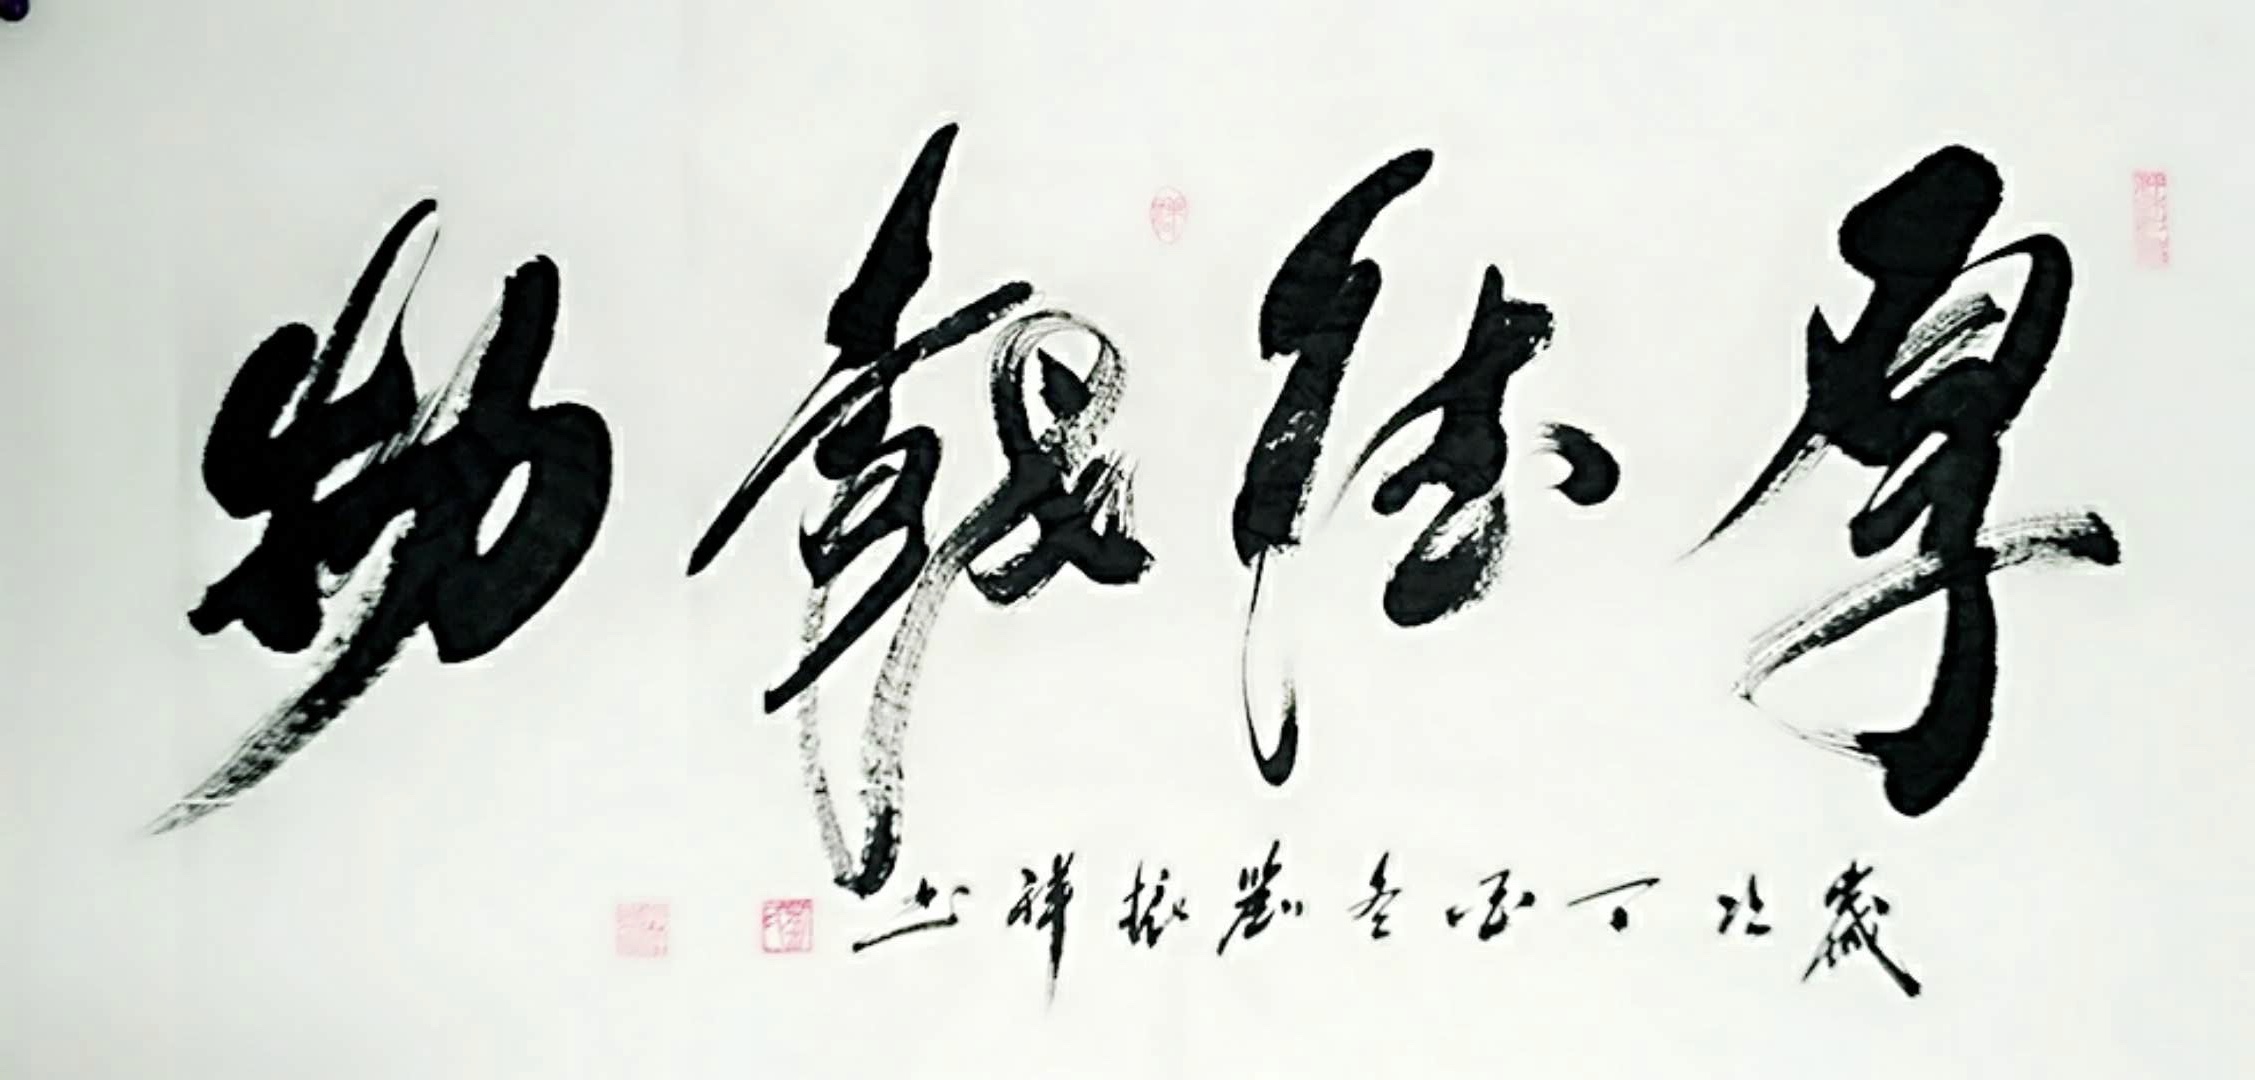 厚德載物
歲次丁酉冬劉振祥书